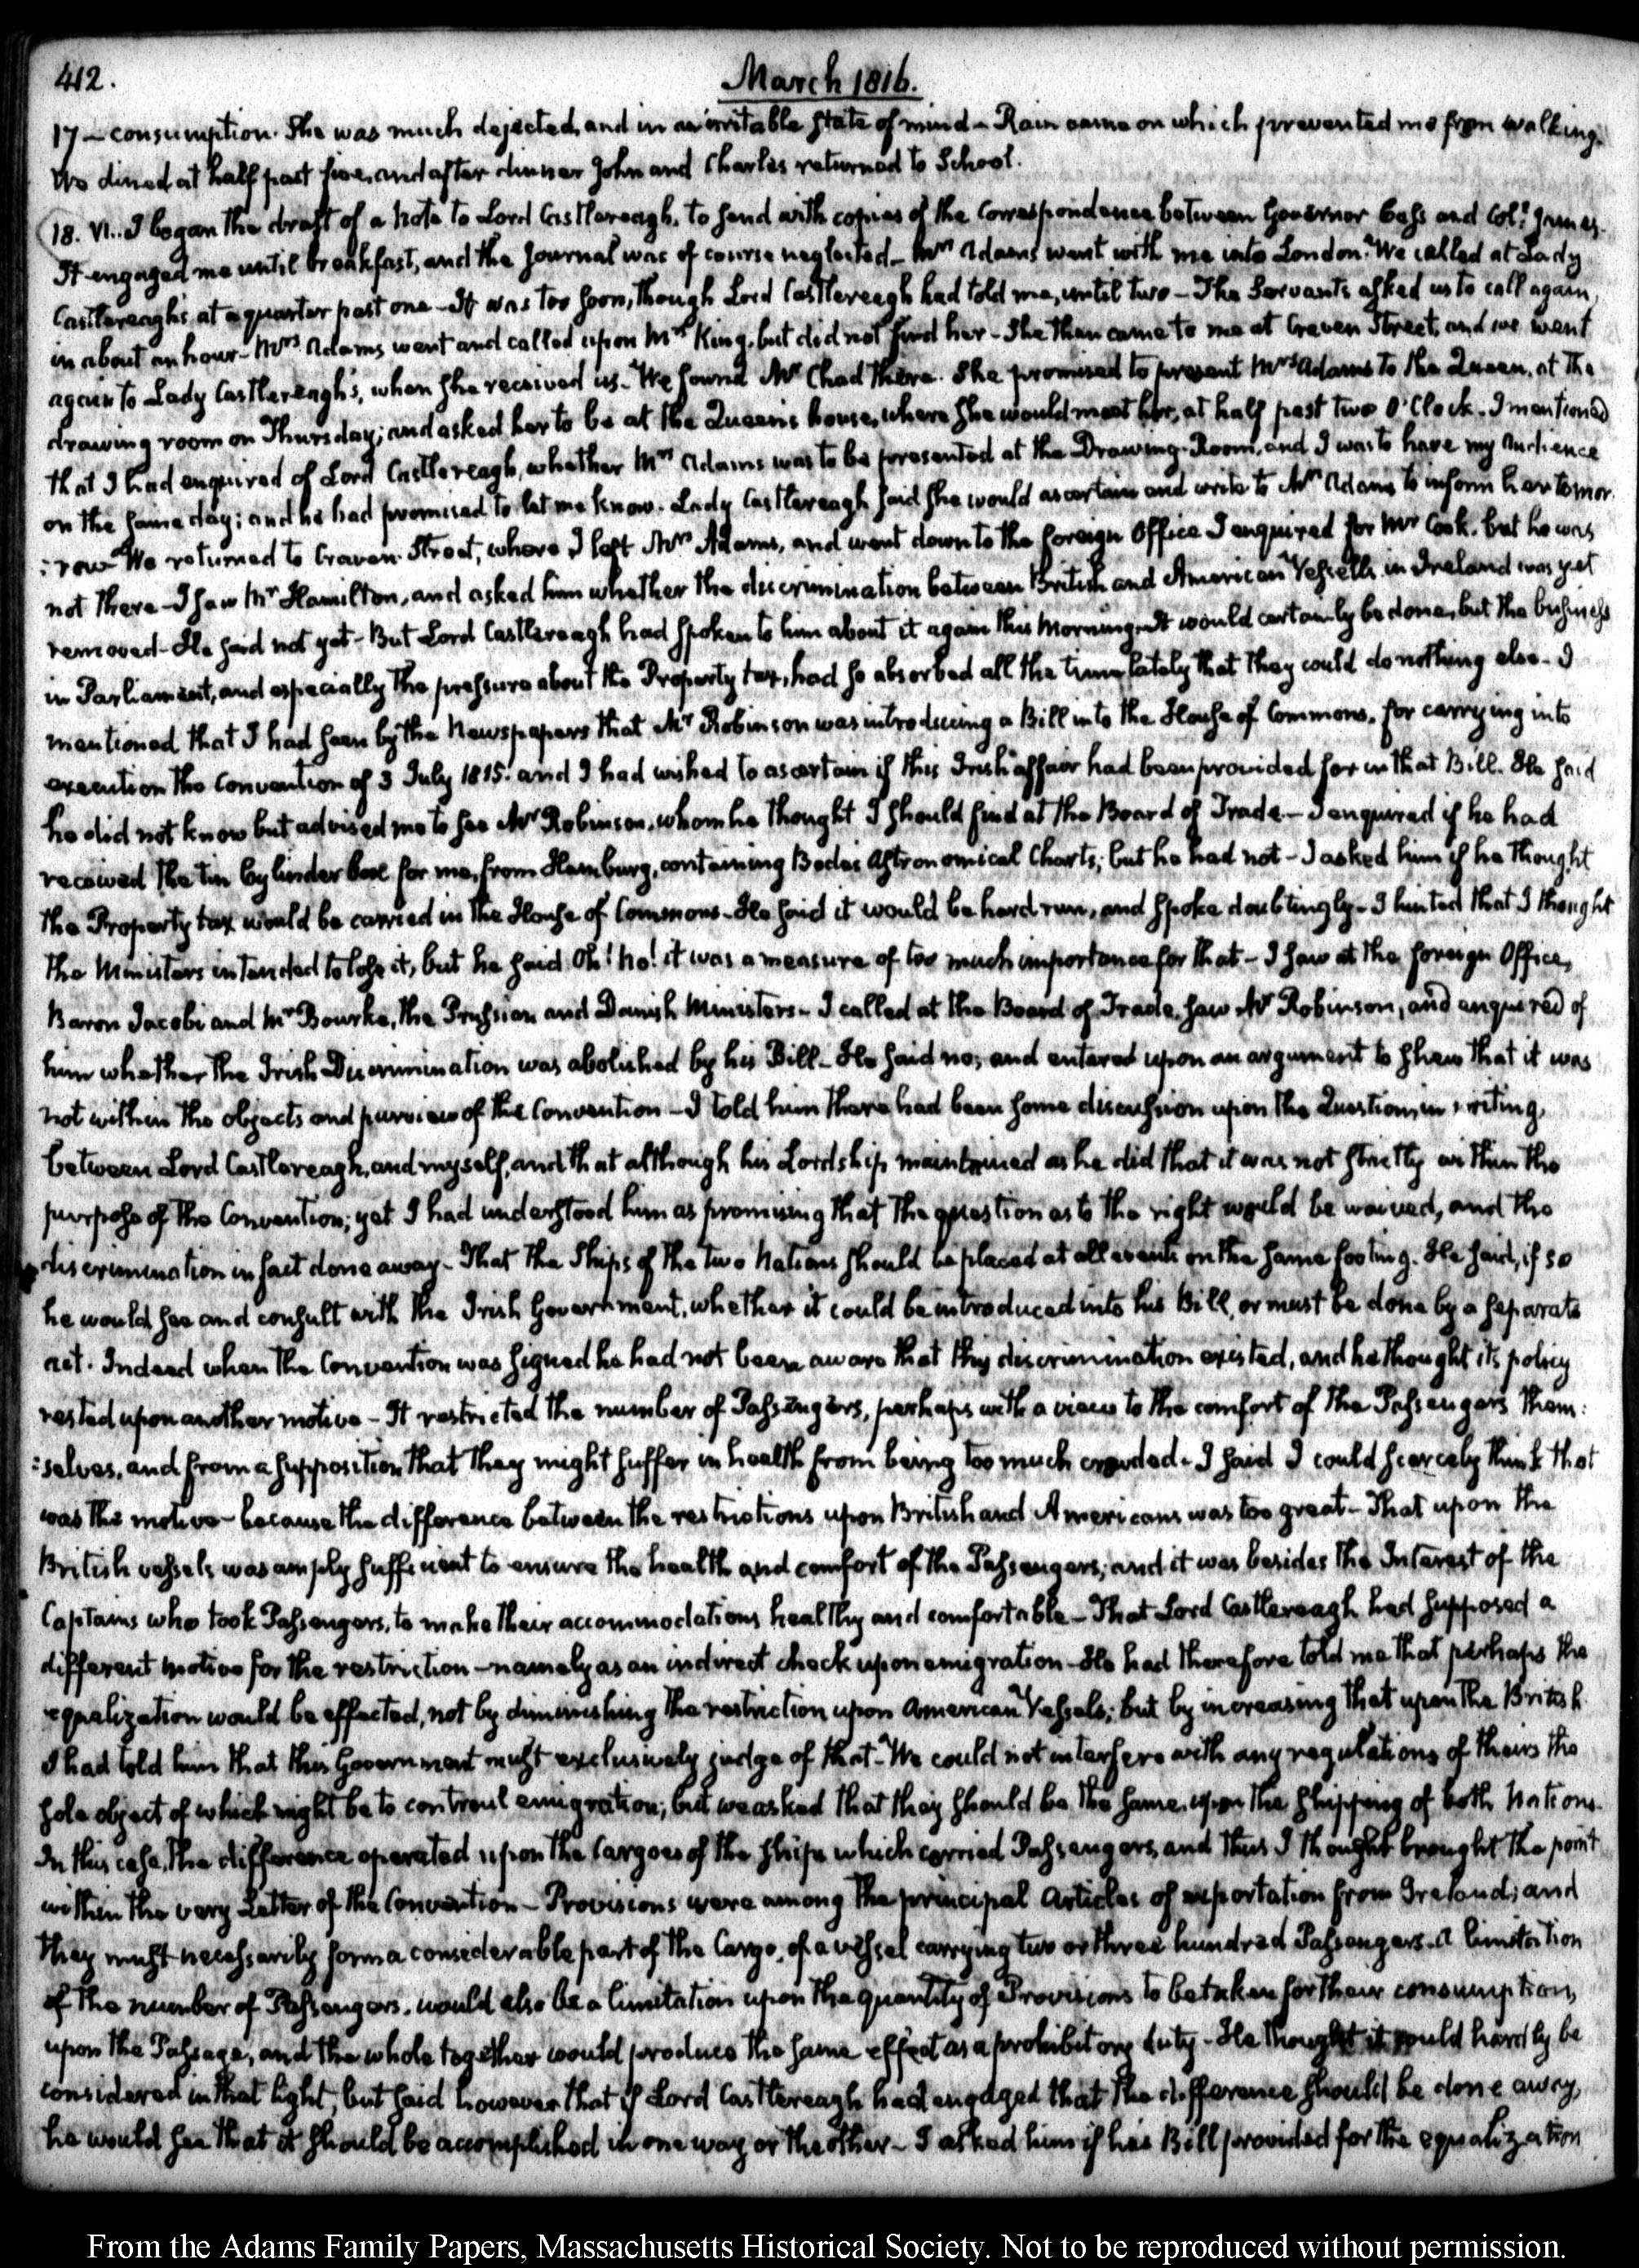 412.
March 1816.
17 — consumption. She was much dejected, and in an irritable state of mind — Rain came on which prevented me from walking.
We dined at half past five, and after dinner John and Charles returned to School.
18. VI.. I began the draft of a Note to Lord Castlereagh, to send with copies of the Correspondence between Governor Cass and Col.! James.
It engaged me until breakfast, and the Journal was of course neglected — Mrs Adams went with me into London. We called at Lady
Castlereagh's at a quarter past one — It was too soon, though Lord Castlereagh had told me, until two — The Servants asked us to call again,
in about an hour — Mrs Adams went and called upon Mrs King, but did not find her — She then came to me at Craven Street, and we went
again to Lady Castlereagh's, when she received us — We found Mr Chad there. She promised to present Mrs Adams to the Queen, at the
drawing room on Thursday; and asked her to be at the Queen's house, where she would meet her, at half past two O'Clock. I mentioned
that I had enquired of Lord Castlereagh, whether Mrs Adams was to be presented at the Drawing-Room, and I was to have my Audience
on the same day; and he had promised to let me know. Lady Castlereagh said she would ascertain and write to Mrs Adams to inform her tomor:
:row — We returned to Craven Street, where I left Mrs Adams, and went down to the foreign Office I enquired for Mr Cook, but he was
not there — I saw Mr Hamilton, and asked him whether the discrimination between British and American Vessells in Ireland was yet
removed — He said not yet — But Lord Castlereagh had spoken to him about it again this Morning — It would certainly be done, but the business
in Parliament, and especially the pressure about the Property tax, had so absorbed all the time lately that they could do nothing else — I
mentioned that I had seen by the Newspapers that Mr Robinson was introducing a Bill into the House of Commons, for carrying into
execution the Convention of 3 July 1815. and I had wished to ascertain if this Irish affair had been provided for in that Bill. He said
he did not know but advised me to see Mr Robinson, whom he thought I should find at the Board of Trade — I enquired if he had
received the tin Cylinder box for me, from Hamburg, containing Bode's Astronomical Charts; but he had not — I asked him if he thought
the Property tax would be carried in the House of Commons — He said it would be hard run, and spoke doubtingly — I hinted that I thought
the Ministers intended to lose it, but he said Oh! no! it was a measure of too much importance for that — I saw at the foreign Office,
Baron Jacobi and Mr Bourke, the Prussian and Danish Ministers — I called at the Board of Trade, saw Mr Robinson, and enquired of
him whether the Irish Discrimination was abolished by his Bill — He said no; and entered upon an argument to shew that it was
not within the objects and purview of the Convention — I told him there had been some discussion upon the Question, in writing,
between Lord Castlereagh, and myself, and that although his Lordship maintained as he did that it was not strictly within the
purpose of the Convention; yet I had understood him as promising that the question as to the right would be waived, and the
discrimination in fact done away — That the Ships of the two Nations should be placed at all events on the same footing. He said, if so
he would see and consult with the Irish Government, whether it could be introduced into his Bill, or must be done by a separate
act. Indeed when the Convention was signed he had not been aware that this discrimination existed, and he thought its policy
rested upon another motive — It restricted the number of Passengers, perhaps with a view to the comfort of the Passengers them:
:selves, and from a supposition that they might suffer in health from being too much crowded — I said I could scarcely think that
was the motive — because the difference between the restrictions upon British and Americans was too great — That upon the
British vessels was amply sufficient to ensure the health and comfort of the Passengers; and it was besides the Interest of the
Captains who took Passengers, to make their accommodations healthy and comfortable — That Lord Castlereagh had supposed a
different motive for the restriction — namely as an indirect check upon emigration — He had therefore told me that perhaps the
equalization would be effected, not by diminishing the restriction upon American Vessels; but by increasing that upon the British
I had told him that this Government must exclusively judge of that — We could not interfere with any regulations of theirs the
sole object of which might be to controul emigration; but we asked that they should be the same, upon the shipping of both Nations.
In this case, the difference operated upon the Cargoes of the ships which carried Passengers, and thus I thought brought the point
within the very Letter of the Convention — Provisions were among the principal Articles of exportation from Ireland; and
they must necessarily form a considerable part of the Cargo, of a vessel carrying two or three hundred Passengers. A limitation
of the number of Passengers, would also be a limitation upon the quantity of Provisions to be taken for their consumption,
upon the Passage, and the whole together would produce the same effect as a prohibitory duty — He thought it could hardly be
considered in that light, but said however that if Lord Castlereagh had engaged that the difference should be done away,
he would see that it should be accomplished in one way or the other — I asked him if his Bill provided for the equalization
From the Adams Family Papers, Massachusetts Historical Society. Not to be reproduced without permission.